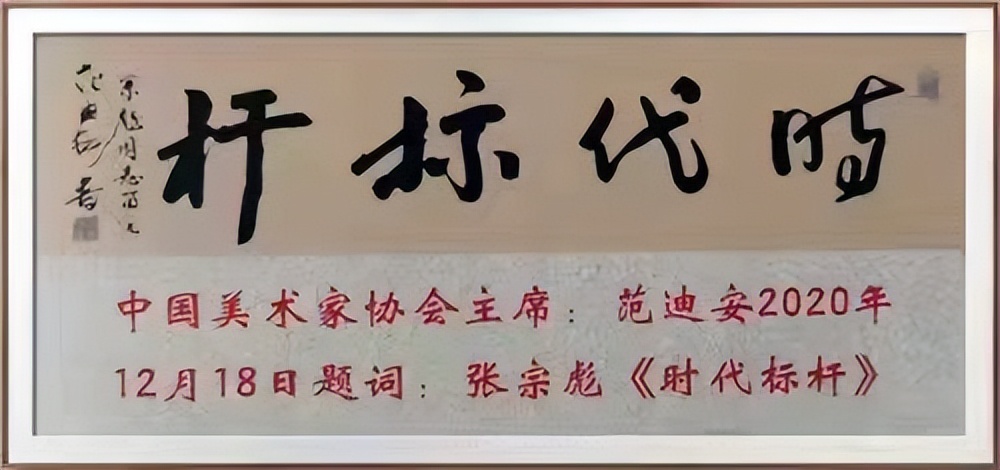 时代标杆
范迪安书
中国美术家协会主席：范迪安2020年
12月18日题词：张宗彪《时代标杆》